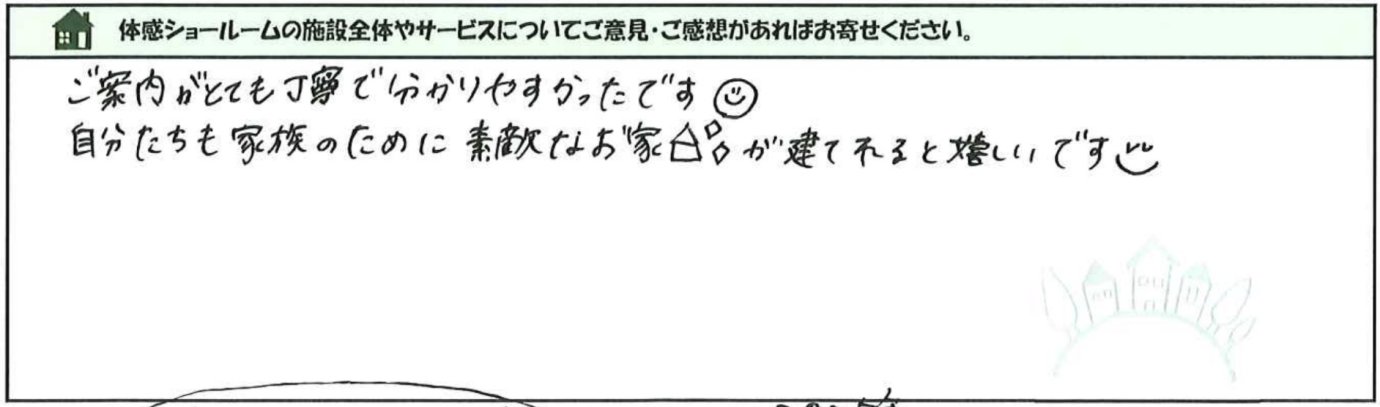 体感ショールームの施設全体やサービスについてご意見・ご感想があればお寄せください。
ご案内がとても丁寧で分かりやすかったです
自分たちも家族のために素敵なお家が建てれると嬉しいです